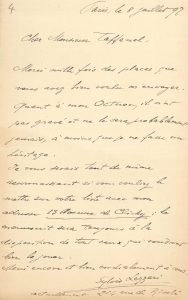 4
Paris, le 8 juillet 97
Cher Monsieur Taffanel.
Merci mille fois des places que
vous avez bien voulu m'envoyer.
Quant à mon Octuor, il n'est
pas gravé et ne le sera probablement
jamais, à moins que je ne fasse un
héritage.
Je vous serais tout de même
reconnaissant si vous vouliez le
mettre sur votre liste avec mon
adresse 13 Avenue de Clichy; le
manuscrit sera toujours à la
disposition de tous ceux qui voudront
bien le jouer.
Merci encore et bien cordialement à vous
Sylvio Lazzari
actuellement